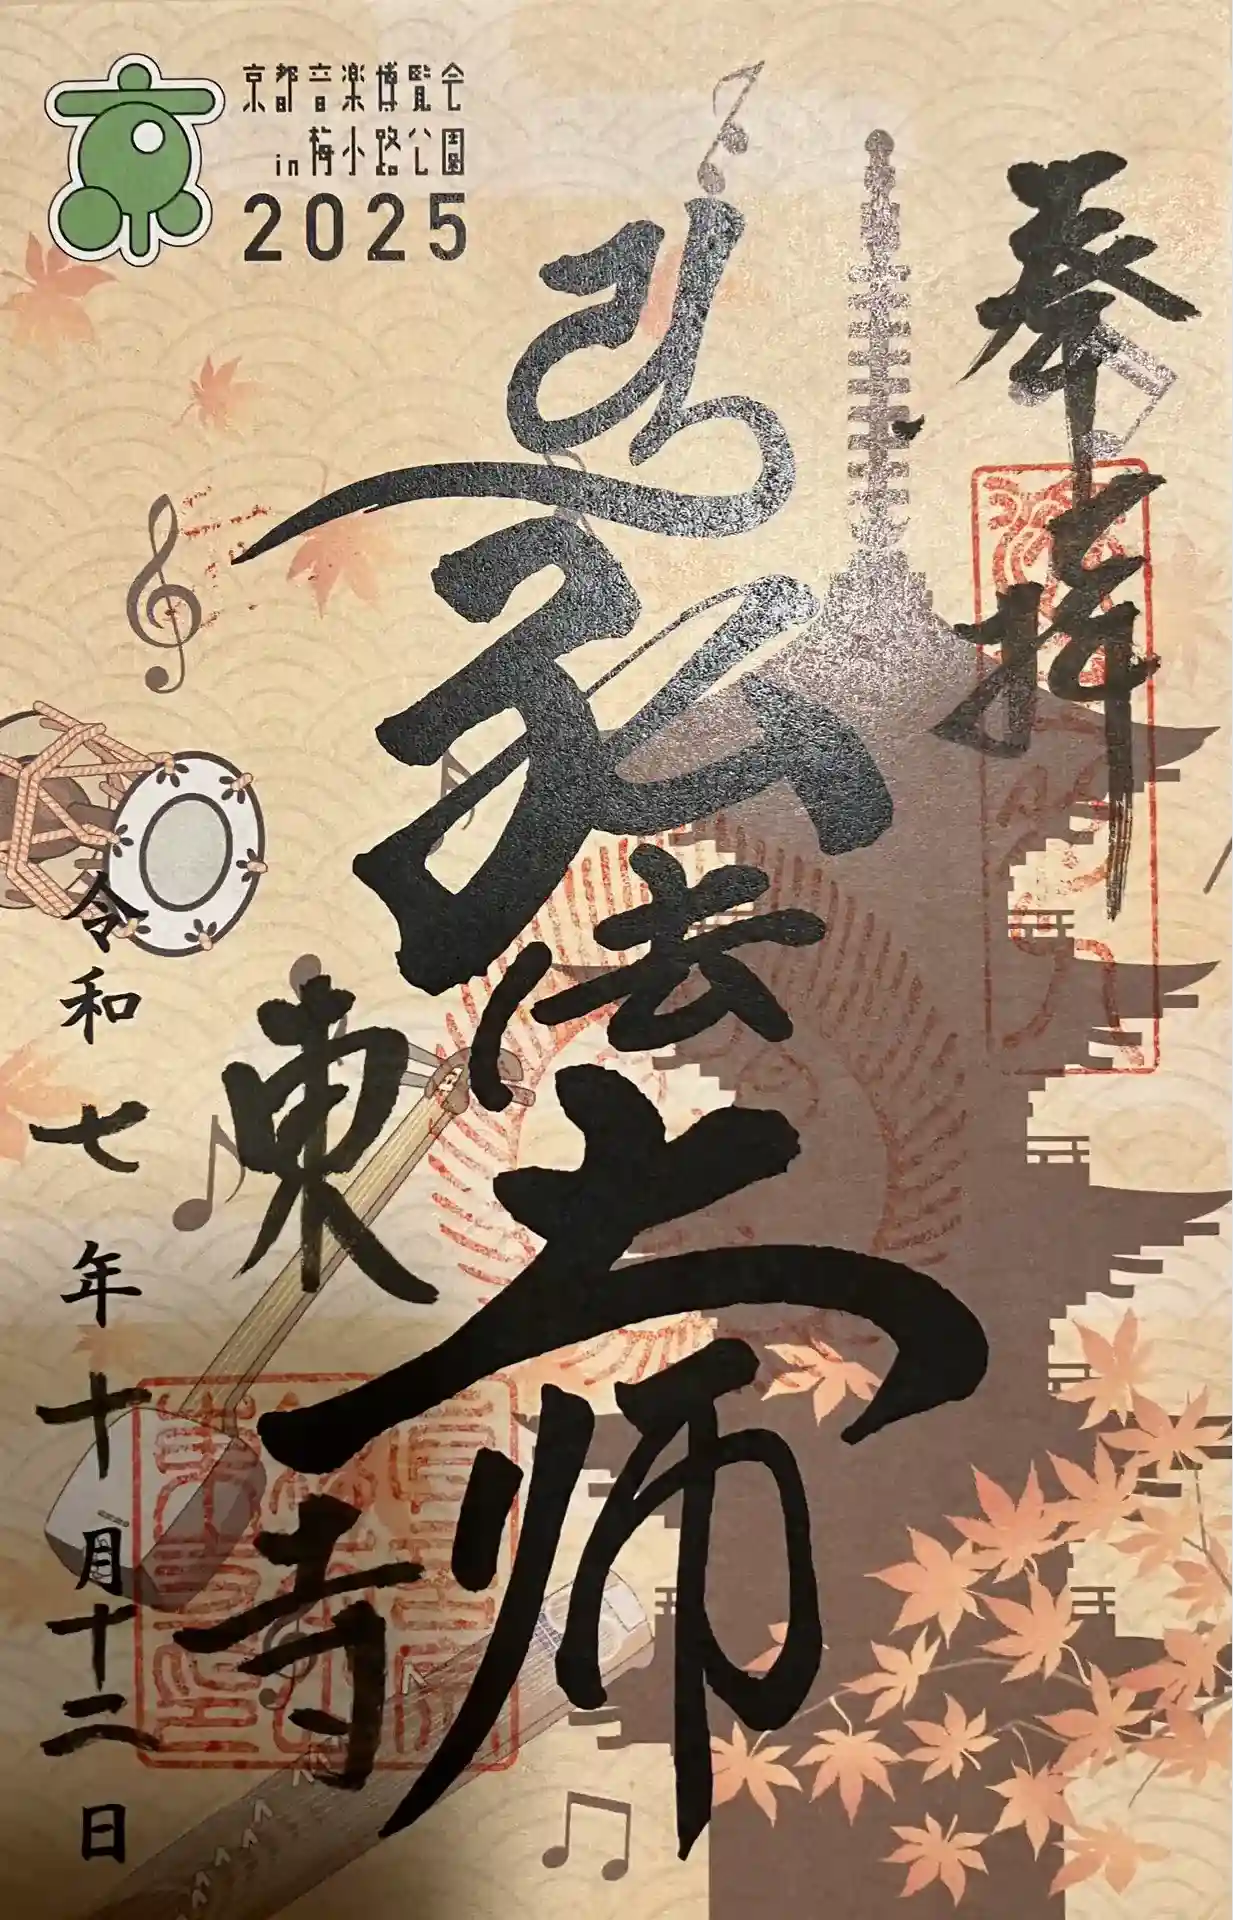 京都音楽博覧会
in梅小路公園
2025
奉拝
弘法大师
東寺
令和七年十月十二日